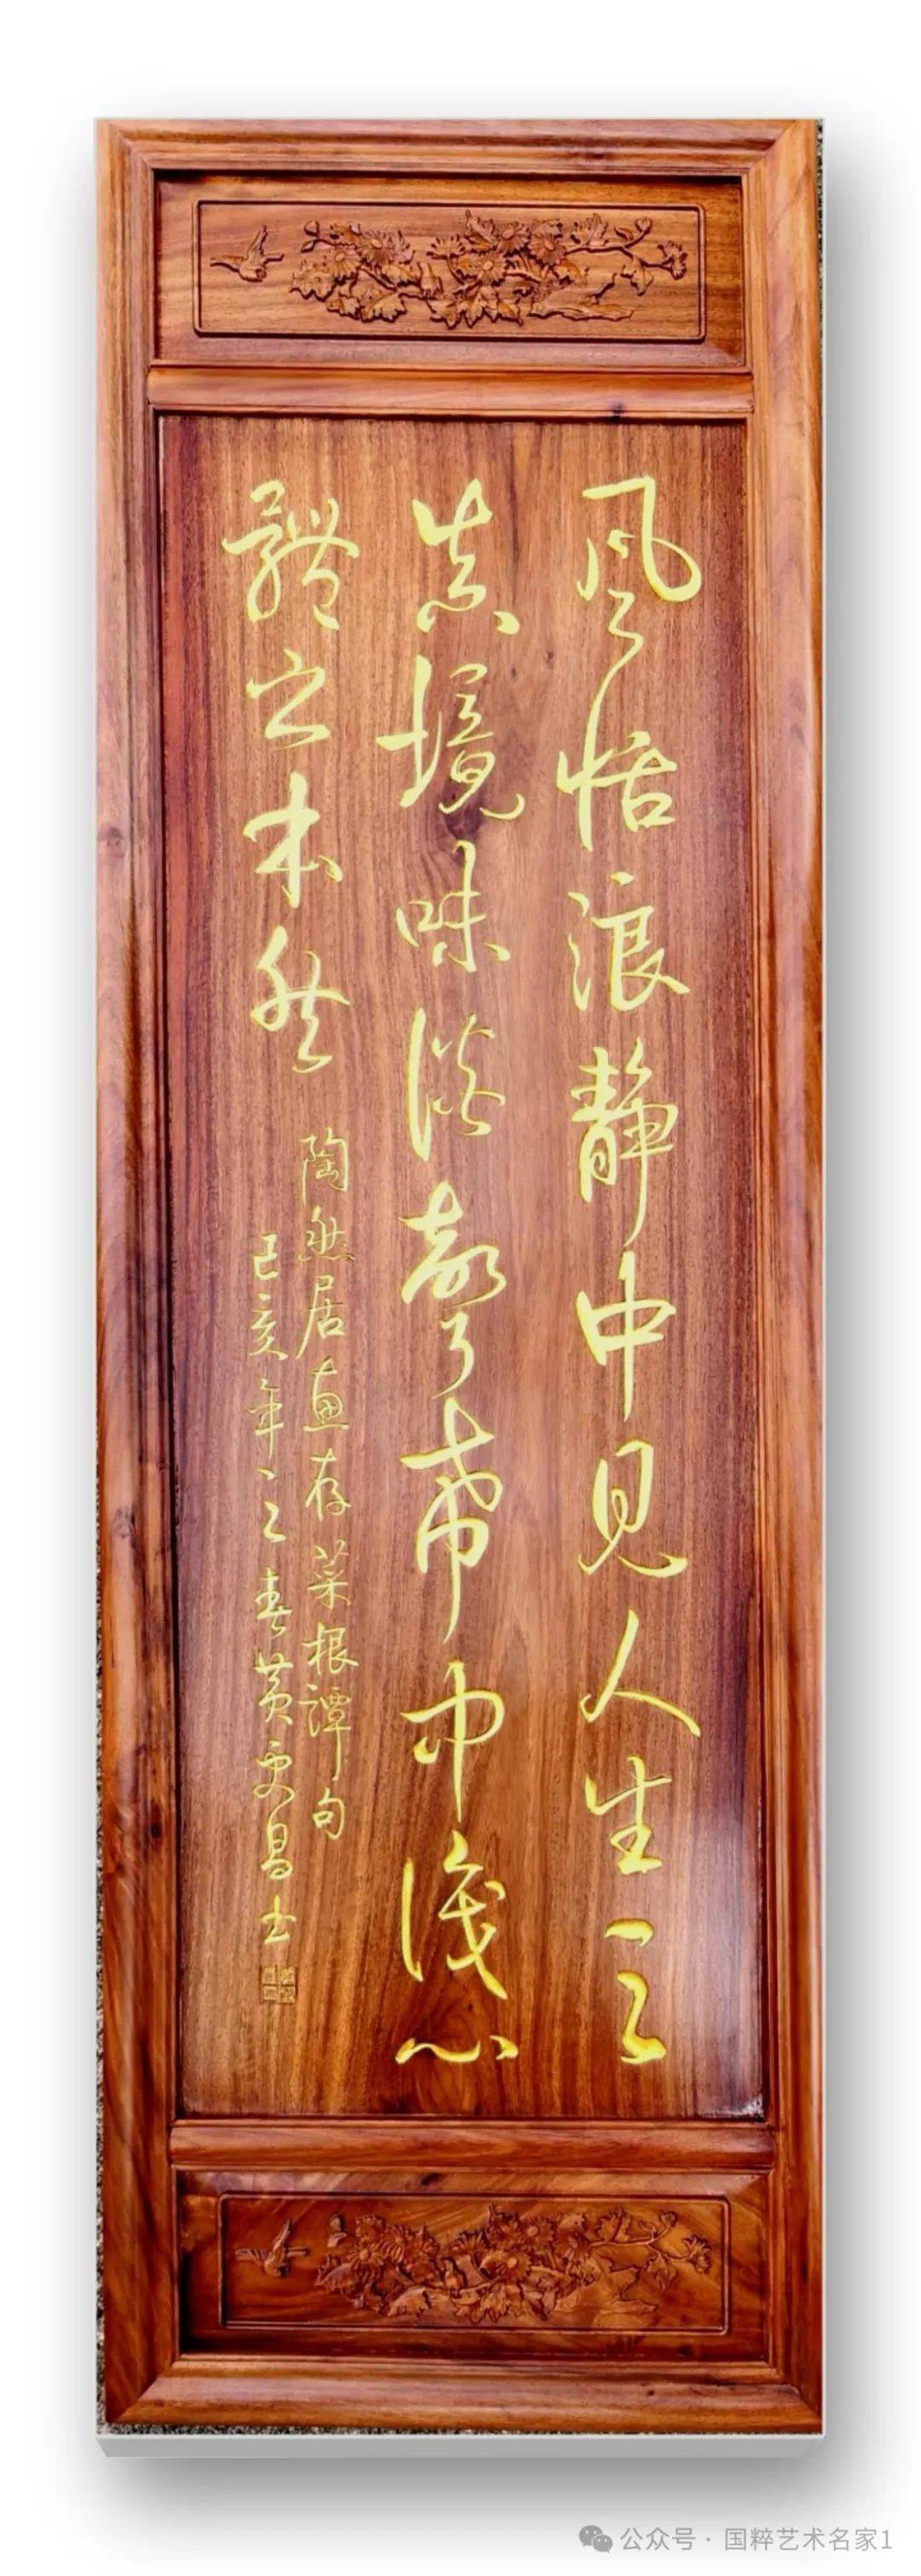 風恬浪静中見人生之
真境味淡聲希中識心
體之本然
陶然居惠存菜根譚句
己亥年之春黄昌书
公众号 · 国粹艺术名家1